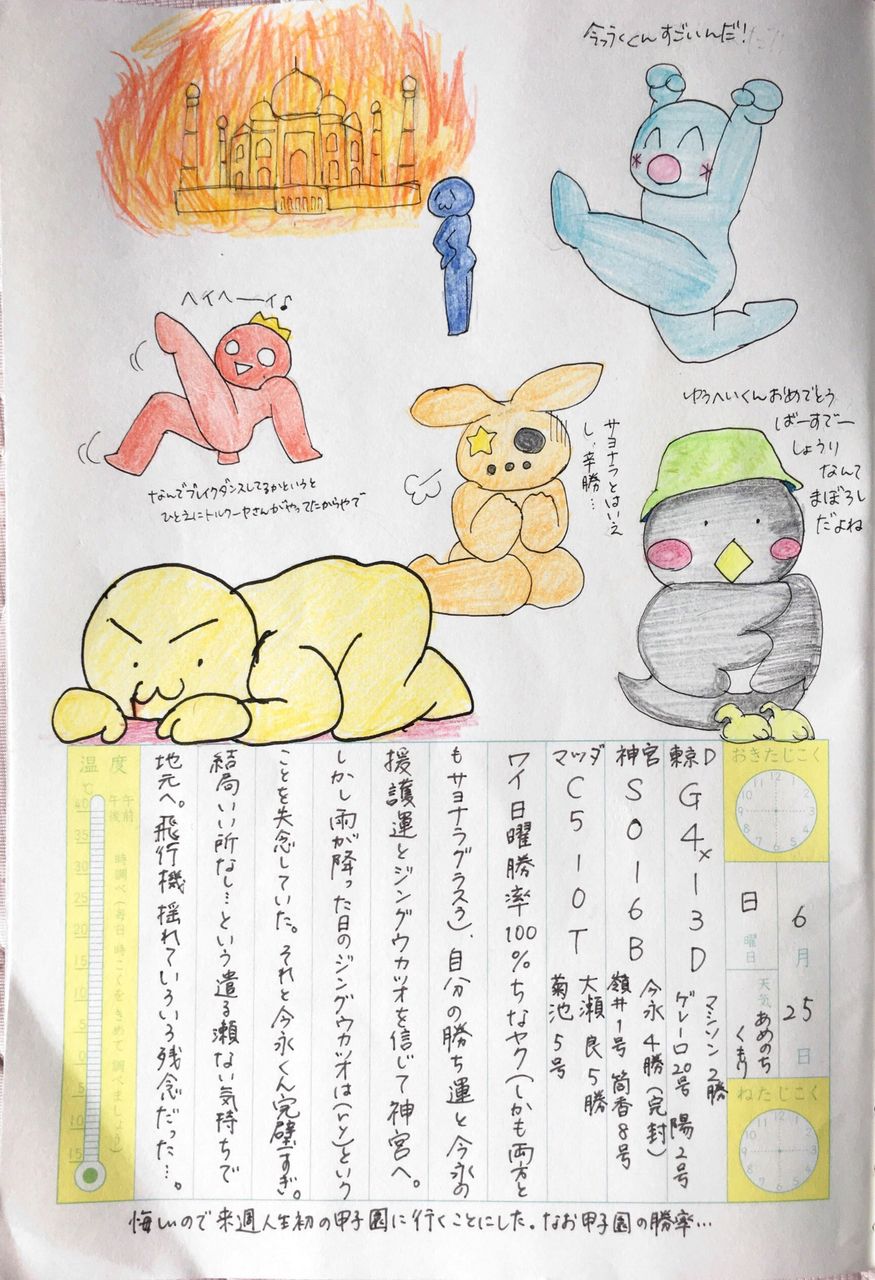 今つうくくんすごいんだ!
ヘイヘーイ♪
なんでブレイクダンスしてるかというと
ひとえにトルクーヤさんがやってたからやで
サヨナラとはいえ
し、辛勝…
ゆうへいくんおめでとう
ばーすでー
しょうり
なんて
まぼろし
だよね
おきたじこく
ねたじこく
6月25日
日曜日
天気 あめのち
くもり
東京D G4x-3D マシソン2勝
ゲレーロ20号 陽2号
神宮 S0-16B 今永4勝(完封)
嶺井1号 筒香8号
マツダ C5-10T 大瀬良5勝
菊池5号
ワイ日曜勝率100%ちなヤク(しかも両方と
もサヨナラグラスラ)、自分の勝ち運と今永の
援護運とジングウカツオを信じて神宮へ。
しかし雨が降った日のジングウカツオは(ry)という
ことを失念していた。それと今永くん完璧すぎ。
結局いい所なし…という遣る瀬ない気持ちで
地元へ。飛行機揺れていろいろ残念だった…。
温度
℃
午前
午後
時調べ(毎日時こくをきめて調べましょう)
40
35
30
25
20
15
10
5
0
5
10
15
悔しいので来週人生初の甲子園に行くことにした。なお甲子園の勝率…